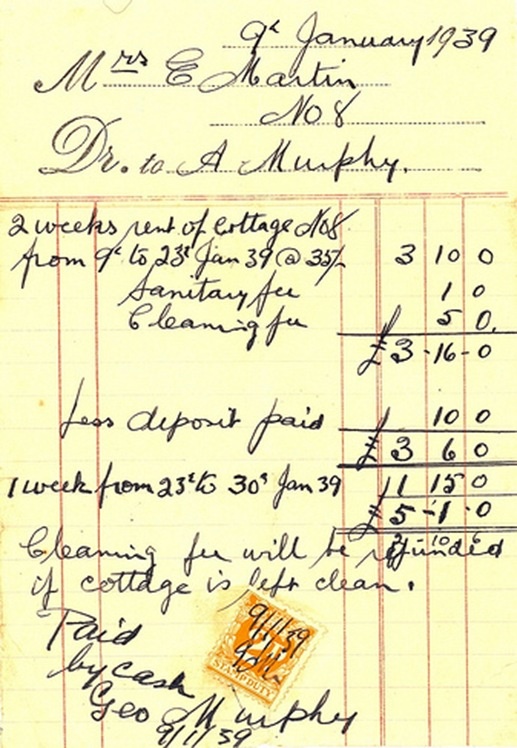 9th January 1939
Mrs E Martin
No 8
Dr. to A Murphy.
2 weeks rent of Cottage No8
from 9th to 23rd Jan 39 @ 35/- 3 10 0
Sanitary fee 1 0
Cleaning fee 5 0.
£ 3-16-0
Less deposit paid 10 0
£ 3 6 0
1 week from 23rd to 30th Jan 39 1 15 0
£ 5-1-0
Cleaning fee will be refunded
if cottage is left clean.
Paid
by cash
Geo Murphy
9/1/39
9/1/39
STAMP DUTY